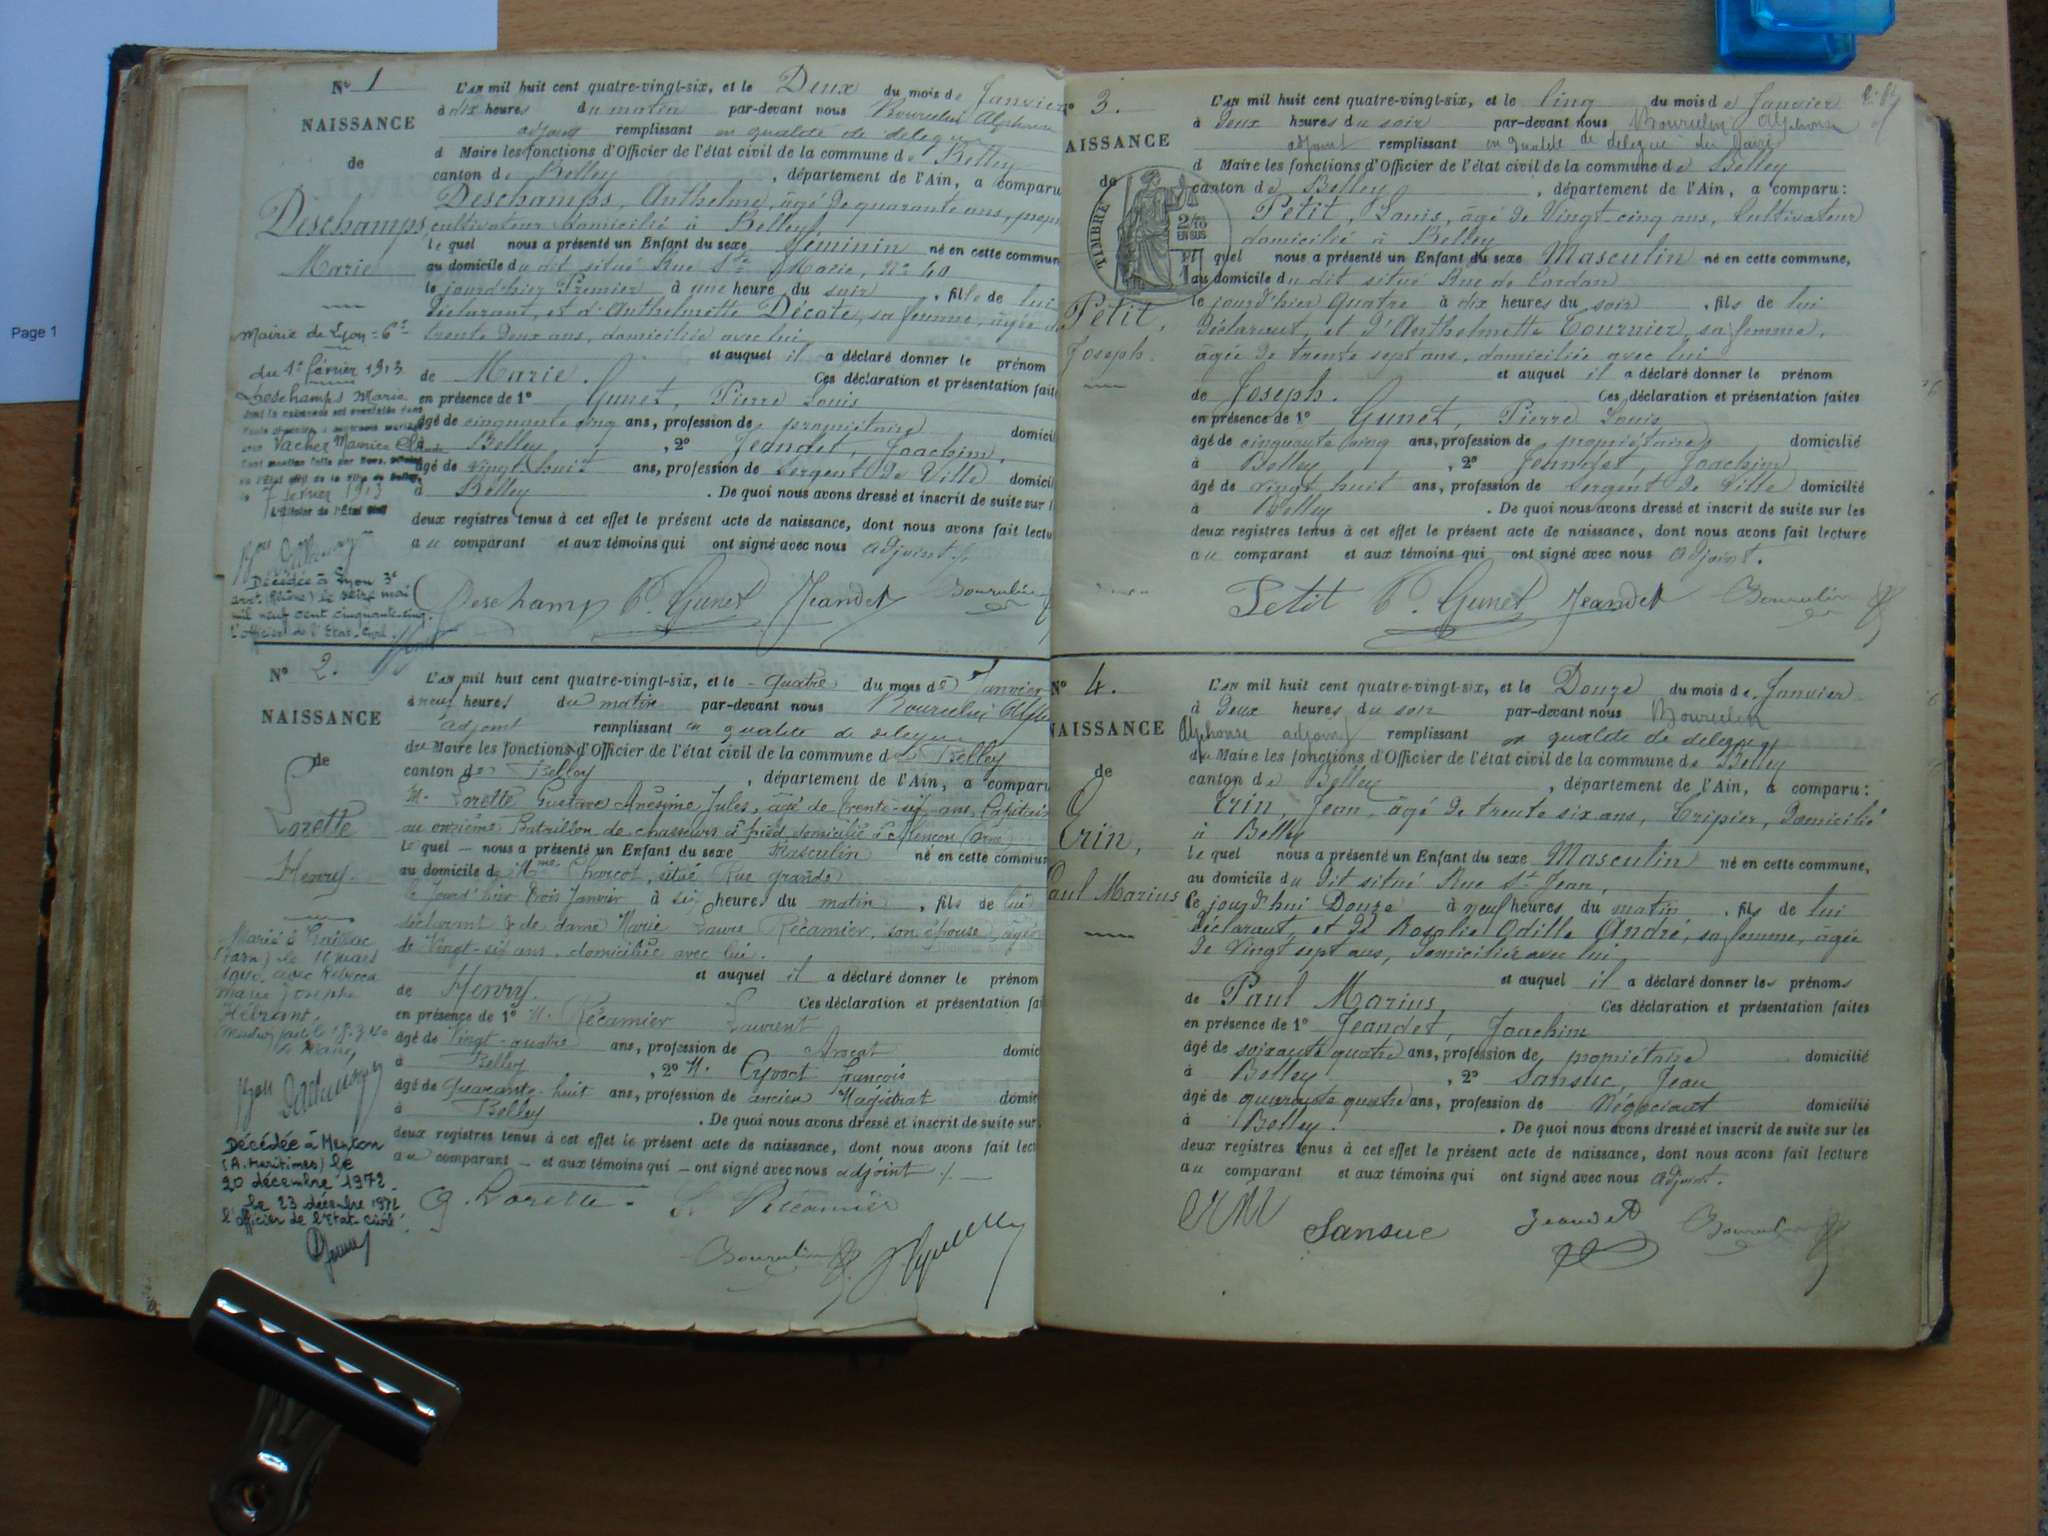 Page 1
N° 1
NAISSANCE
de
Deschamps,
Marie
Mairie de Lyon = 6e
du 1er février 1913
Deschamps Marie
Vacher
7 février 1913
L'Officier de l'Etat Civil
Décédée à Lyon 3e
arrt. (Rhône) le seize mai
mil neuf cent cinquante-cinq.
L'Officier de l'Etat-Civil.
L'AN mil huit cent quatre-vingt-six, et le Deux du mois de Janvier
à dix heures du matin par-devant nous Bourulin Alphonse
adjoint remplissant en qualité de
d Maire les fonctions d'Officier de l'état civil de la commune de Belley
canton de Belley , département de l'Ain, a comparu
Deschamps, Anthelme, âgé de quarante ans,
cultivateur domicilié à Belley,
le quel nous a présenté un Enfant du sexe féminin né en cette commun
au domicile du dit situé Rue Ste Marie, N° 40
le jourd'hier Premier à une heure du soir , fille de lui
Déclarant, et d'Anthelmette Décote, sa femme, âgée de
trente deux ans, domiciliée avec lui
et auquel il a déclaré donner le prénom
de Marie. Ces déclaration et présentation faite
en présence de 1° Gunet, Pierre Louis
âgé de cinquante cinq ans, profession de propriétaire domicil
à Belley , 2° Jeandet, Joachim,
âgé de vingt huit ans, profession de Sergent de Ville domicil
à Belley . De quoi nous avons dressé et inscrit de suite sur l
deux registres tenus à cet effet le présent acte de naissance, dont nous avons fait lectu
au comparant et aux témoins qui ont signé avec nous adjoint.
Deschamps P. Gunet Jeandet Bourulin
N° 2.
NAISSANCE
de
Lorette
Henry.
(Tarn) le 16 mars
avec Rebecca
Marie Josephe
Décédée à Menton
(A. Maritimes) le
20 décembre 1972.
le 23 décembre 1972
l'officier de l'état-civil
L'AN mil huit cent quatre-vingt-six, et le quatre du mois de Janvier
à neuf heures du matin par-devant nous Bourulin
adjoint remplissant en qualité de
du Maire les fonctions d'Officier de l'état civil de la commune de Belley
canton de Belley , département de l'Ain, a comparu
M. Lorette Gustave Onésime Jules, âgé de trente-six ans, Capitain
au onzième Bataillon de chasseurs à pied, domicilié à Alençon (Orne)
le quel – nous a présenté un Enfant du sexe Masculin né en cette commun
au domicile de Mme Charcot, situé Rue grande
le jourd'hier trois Janvier à six heures du matin , fils de lui
déclarant & de dame Marie Laure Récamier, son épouse, âgée
de Vingt-six ans, domiciliée avec lui.
et auquel il a déclaré donner le prénom
de Henry. Ces déclaration et présentation fai
en présence de 1° M. Récamier Laurent
âgé de Vingt-quatre ans, profession de Avocat domic
à Belley , 2° M. François
âgé de Quarante-huit ans, profession de ancien Magistrat domic
à Belley . De quoi nous avons dressé et inscrit de suite sur
deux registres tenus à cet effet le présent acte de naissance, dont nous avons fait lect
au comparant – et aux témoins qui – ont signé avec nous adjoint ./. –
G. Lorette L. Récamier
Bourulin
N° 3.
NAISSANCE
de
TIMBRE
2/10
EN SUS
Petit,
Joseph.
L'AN mil huit cent quatre-vingt-six, et le Cinq du mois de Janvier
à Deux heures du soir par-devant nous Bourulin Alphonse
adjoint remplissant en qualité de délégué du Maire
d Maire les fonctions d'Officier de l'état civil de la commune de Belley
canton de Belley , département de l'Ain, a comparu:
Petit, Louis, âgé de Vingt cinq ans, Cultivateur
domicilié à Belley
le quel nous a présenté un Enfant du sexe Masculin né en cette commune,
au domicile du dit situé Rue de Cordon
le jourd'hier quatre à dix heures du soir , fils de lui
Déclarant, et d'Anthelmette Tournier, sa femme,
âgée de trente sept ans, domiciliée avec lui
et auquel il a déclaré donner le prénom
de Joseph. Ces déclaration et présentation faites
en présence de 1° Gunet, Pierre Louis
âgé de cinquante cinq ans, profession de propriétaire domicilié
à Belley , 2° Jeandet, Joachim
âgé de vingt huit ans, profession de Sergent de Ville domicilié
à Belley . De quoi nous avons dressé et inscrit de suite sur les
deux registres tenus à cet effet le présent acte de naissance, dont nous avons fait lecture
au comparant et aux témoins qui ont signé avec nous adjoint.
Petit P. Gunet Jeandet Bourulin
N° 4.
NAISSANCE
de
Trin,
Paul Marius
L'AN mil huit cent quatre-vingt-six, et le Douze du mois de Janvier
à Deux heures du soir par-devant nous Bourulin
Alphonse adjoint remplissant en qualité de délégué
du Maire les fonctions d'Officier de l'état civil de la commune de Belley
canton de Belley , département de l'Ain, a comparu:
Trin, Jean, âgé de trente six ans, Tripier, Domicilié
à Belley
le quel nous a présenté un Enfant du sexe Masculin né en cette commune,
au domicile du dit situé Rue St Jean,
le jourd'hui Douze à neuf heures du matin , fils de lui
Déclarant, et de Rosalie Odille André, sa femme, âgée
de Vingt sept ans, Domiciliée avec lui
et auquel il a déclaré donner les prénoms
de Paul Marius, Ces déclaration et présentation faites
en présence de 1° Jeandet, Joachim
âgé de soixante quatre ans, profession de propriétaire domicilié
à Belley , 2° Sansuc, Jean
âgé de quarante quatre ans, profession de Négociant domicilié
à Belley. . De quoi nous avons dressé et inscrit de suite sur les
deux registres tenus à cet effet le présent acte de naissance, dont nous avons fait lecture
au comparant et aux témoins qui ont signé avec nous adjoint.
Sansuc Jeandet Bourulin